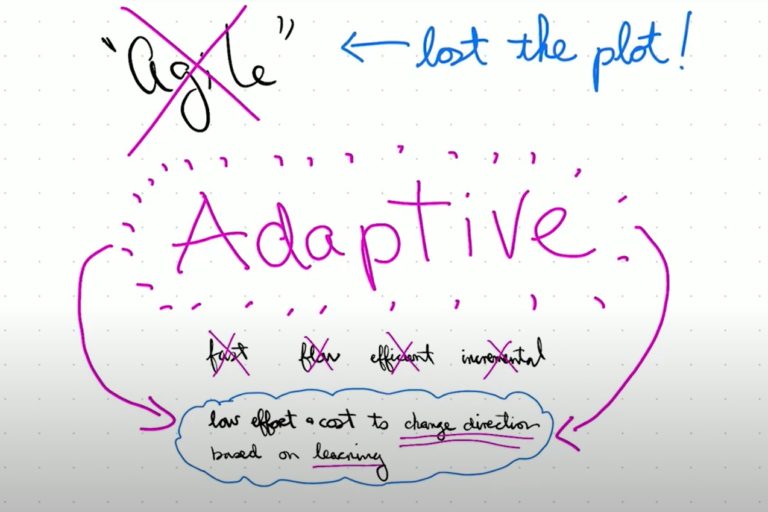 "agile" ← lost the plot!
Adaptive
fast flow efficient incremental
low effort & cost to change direction
based on learning